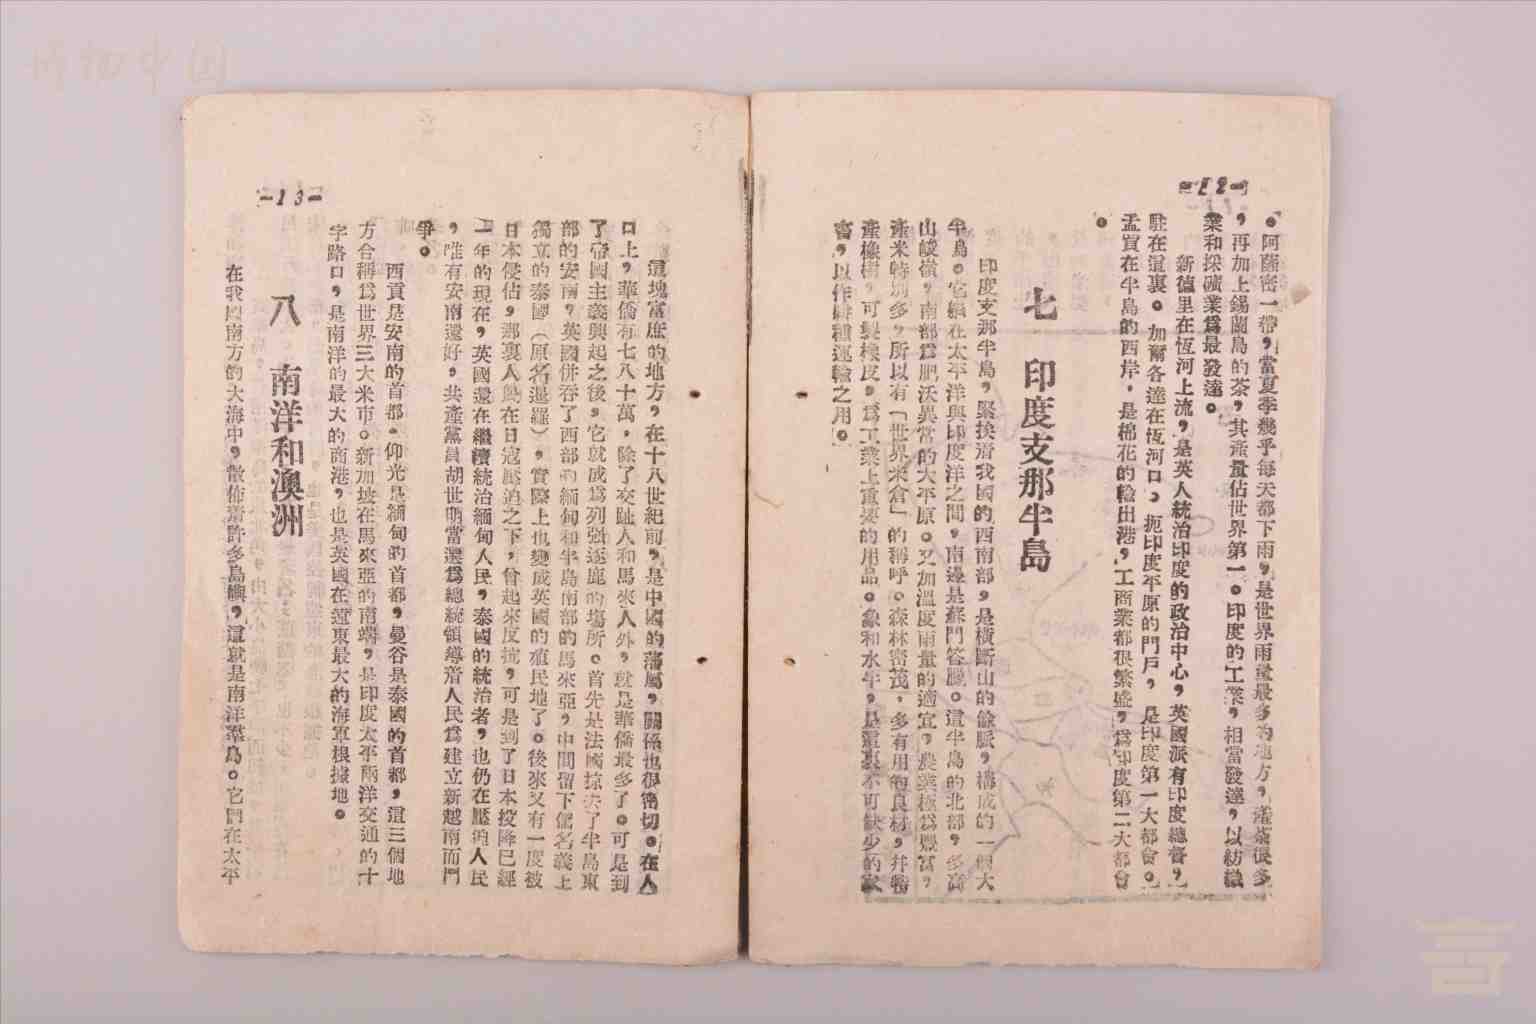 -12-
。阿薩密一帶，當夏季幾乎每天都下雨，是世界雨量最多的地方，產茶很多
，再加上錫蘭島的茶，其產量佔世界第一。印度的工業，相當發達，以紡織
業和採礦業爲最發達。
新德里在恆河上流，是英人統治印度的政治中心，英國派有印度總督，
駐在這裏。加爾各達在恆河口，扼印度平原的門戶，是印度第一大都會。
孟買在半島的西岸，是棉花的輸出港，工商業都很繁盛，爲印度第二大都會
。
七 印度支那半島
印度支那半島，緊挨着我國的西南部，是橫斷山的餘脈，構成的一個大
半島。它繼在太平洋與印度洋之間，南邊是蘇門答臘。這半島的北部，多高
山峻嶺，南部爲肥沃異常的大平原。又加溫度雨量的適宜，農業極爲豐富，
產米特別多，所以有「世界米倉」的稱呼。森林密茂，多有用的良材，并特
產橡樹，可製橡皮，爲工業上重要的用品。象和水牛，是這裏不可缺少的家
畜，以作耕種運輸之用。
-13-
這塊富庶的地方，在十八世紀前，是中國的藩屬，關係也很密切。在人
口上，華僑有七八十萬，除了交趾人和馬來人外，就是華僑最多了。可是到
了帝國主義興起之後，它就成爲列強逐鹿的場所。首先是法國掠去了半島東
部的安南，英國併吞了西部的緬甸和半島南部的馬來亞，中間留下僅名義上
獨立的泰國（原名暹羅），實際上也變成英國的殖民地了。後來又有一度被
日本侵佔，那裏人民在日寇壓迫之下，曾起來反抗，可是到了日本投降已經
一年的現在，英國還在繼續統治緬甸人民，泰國的統治者，也仍在壓迫人民
，唯有安南還好，共產黨員胡世明當選爲總統領導着人民爲建立新越南而鬥
爭。
西貢是安南的首都。仰光是緬甸的首都，曼谷是泰國的首都，這三個地
方合稱爲世界三大米市。新加坡在馬來亞的南端，是印度太平兩洋交通的十
字路口，是南洋的最大的商港，也是英國在遠東最大的海軍根據地。
八 南洋和澳洲
在我國南方的大海中，散佈着許多島嶼，這就是南洋羣島。它們在太平